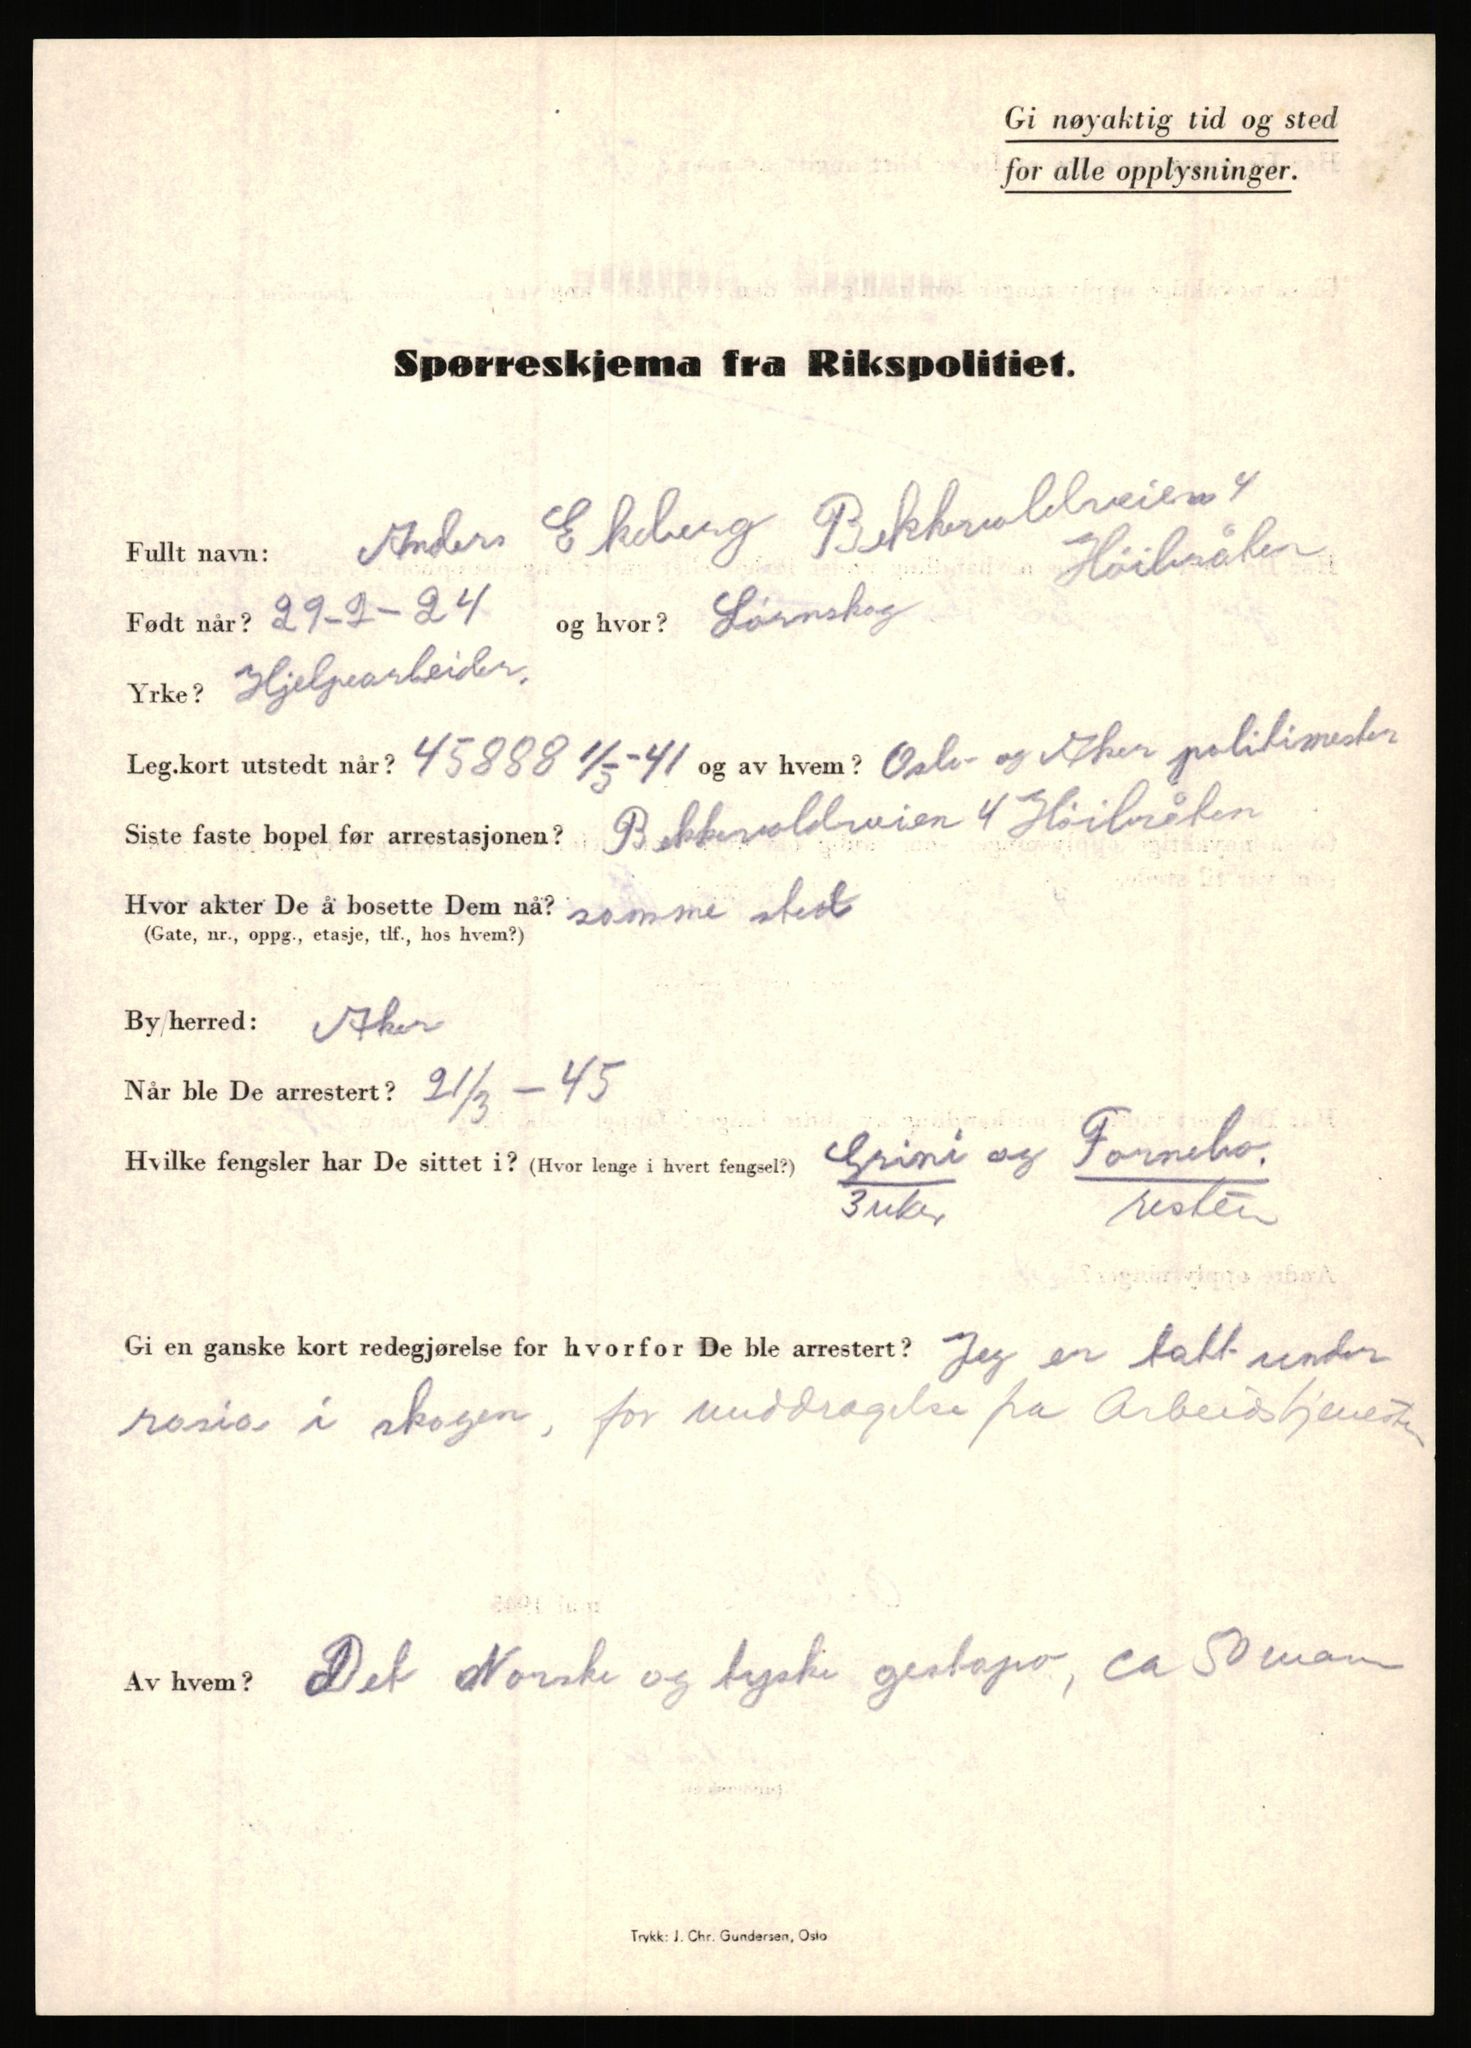 Gi nøyaktig tid og sted
for alle opplysninger.
Spørreskjema fra Rikspolitiet.
Fullt navn: Anders Ekeberg Bekkevoldveien 4
Høibråten
Født når? 29-2-24 og hvor? Lørnskog
Yrke? Hjelpearbeider.
Leg.kort utstedt når? 45888 1/5-41 og av hvem? Oslo og Aker politimester
Siste faste bopel før arrestasjonen? Bekkevoldveien 4 Høibråten
Hvor akter De å bosette Dem nå? samme sted
(Gate, nr., oppg., etasje, tlf., hos hvem?)
By/herred: Aker
Når ble De arrestert? 21/3 - 45
Hvilke fengsler har De sittet i? (Hvor lenge i hvert fengsel?) Grini og Fornebo.
3 uker resten
Gi en ganske kort redegjørelse for hvorfor De ble arrestert? Jeg er tatt under
rasia i skogen, for unddragelse fra Arbeidstjenesten
Av hvem? Det Norske og tyske gestapo, ca 50 mann
Trykk: J. Chr. Gundersen, Oslo